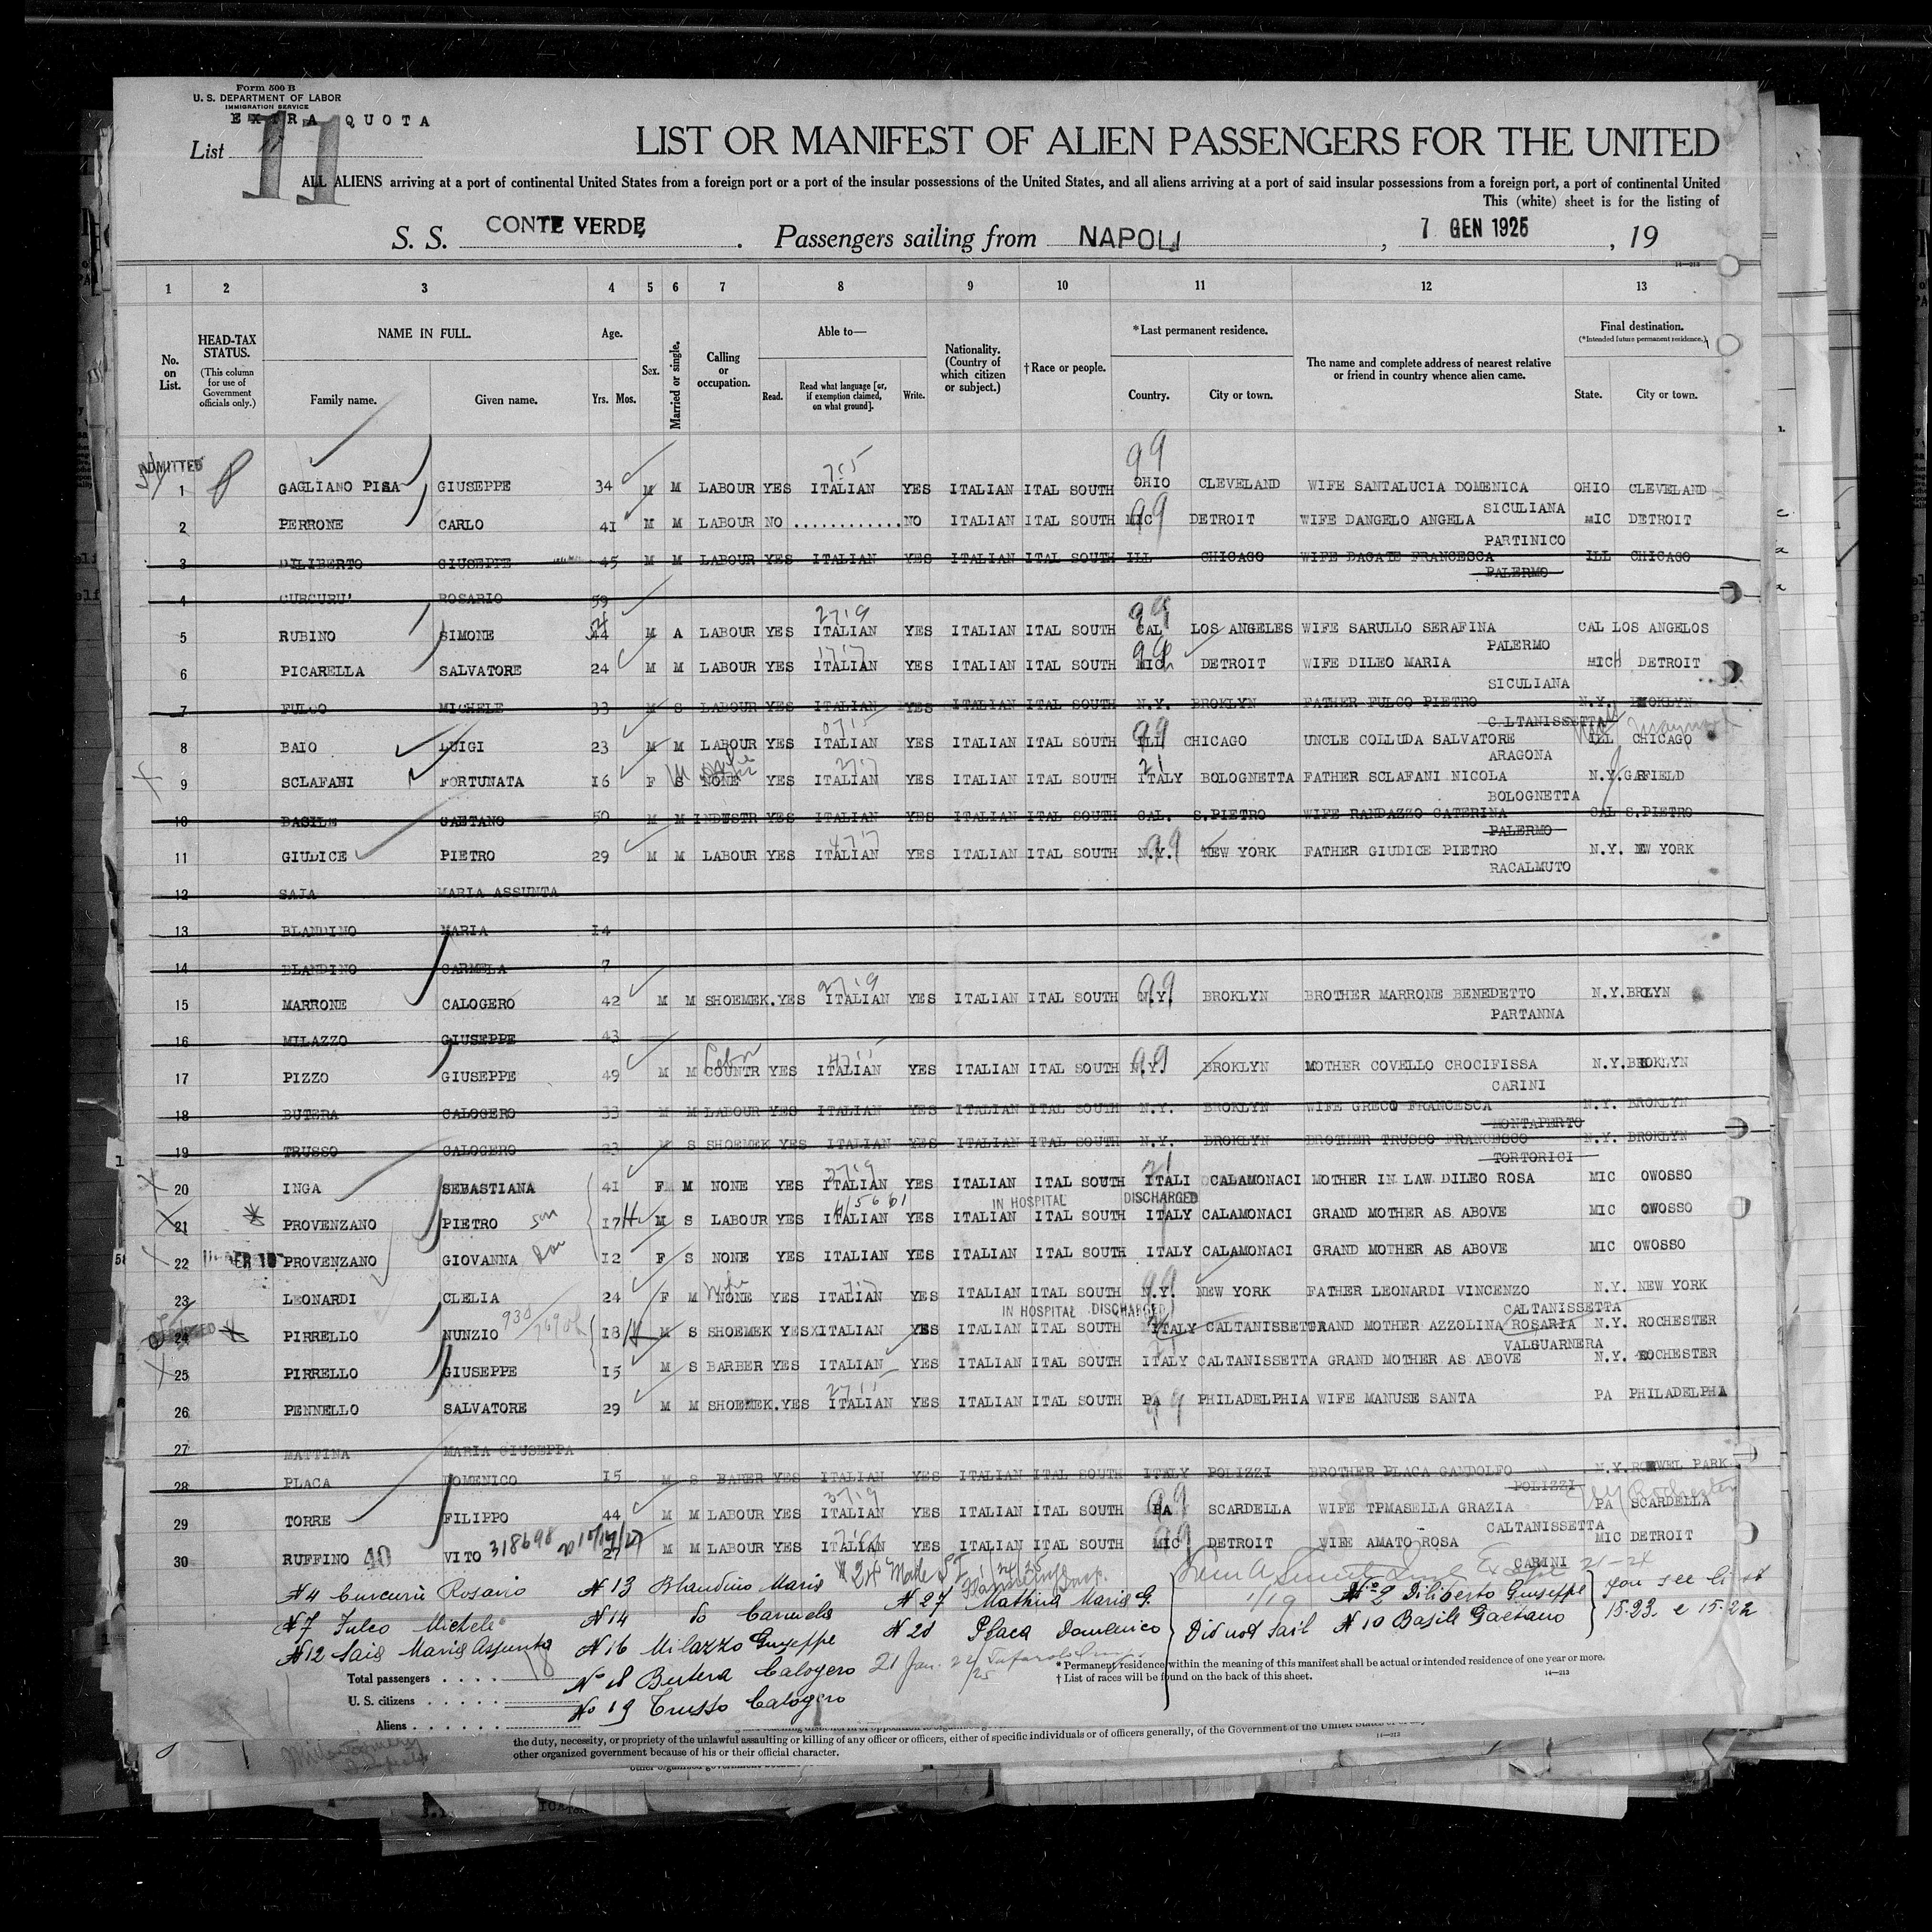 Form 500 B
U. S. DEPARTMENT OF LABOR
IMMIGRATION SERVICE
EXTRA QUOTA
List 11
LIST OR MANIFEST OF ALIEN PASSENGERS FOR THE UNITED
ALL ALIENS arriving at a port of continental United States from a foreign port or a port of the insular possessions of the United States, and all aliens arriving at a port of said insular possessions from a foreign port, a port of continental United
This (white) sheet is for the listing of
S. S. CONTE VERDE, Passengers sailing from NAPOLI, 7 GEN 1925, 19
14—213
1 2 3 4 5 6 7 8 9 10 11 12 13
No. on List. HEAD-TAX STATUS. (This column for use of Government officials only.) NAME IN FULL. Family name. Given name. Age. Yrs. Mos. Sex. Married or single. Calling or occupation. Able to— Read. Read what language [or, if exemption claimed, on what ground]. Write. Nationality. (Country of which citizen or subject.) †Race or people. *Last permanent residence. Country. City or town. The name and complete address of nearest relative or friend in country whence alien came. Final destination. (*Intended future permanent residence.) State. City or town.
ADMITTED 99
1 GAGLIANO PISA GIUSEPPE 34 M M LABOUR YES ITALIAN YES ITALIAN ITAL SOUTH OHIO CLEVELAND WIFE SANTALUCIA DOMENICA OHIO CLEVELAND
SICULIANA
2 PERRONE CARLO 41 M M LABOUR NO ............ NO ITALIAN ITAL SOUTH MIC DETROIT WIFE DANGELO ANGELA MIC DETROIT
PARTINICO
3 DILIBERTO GIUSEPPE 45 M M LABOUR YES ITALIAN YES ITALIAN ITAL SOUTH ILL CHICAGO WIFE DAGATE FRANCESCA ILL CHICAGO
PALERMO
4 CURCURU' ROSARIO 59
5 RUBINO SIMONE 44 M A LABOUR YES ITALIAN YES ITALIAN ITAL SOUTH CAL LOS ANGELES WIFE SARULLO SERAFINA CAL LOS ANGELOS
PALERMO
6 PICARELLA SALVATORE 24 M M LABOUR YES ITALIAN YES ITALIAN ITAL SOUTH MICH DETROIT WIFE DILEO MARIA MICH DETROIT
SICULIANA
7 FULCO MICHELE 33 M S LABOUR YES ITALIAN YES ITALIAN ITAL SOUTH N.Y. BROKLYN FATHER FULCO PIETRO N.Y. BROKLYN
CALTANISSETTA
8 BAIO LUIGI 23 M M LABOUR YES ITALIAN YES ITALIAN ITAL SOUTH ILL CHICAGO UNCLE COLLUDA SALVATORE ILL CHICAGO
ARAGONA
9 SCLAFANI FORTUNATA 16 F S NONE YES ITALIAN YES ITALIAN ITAL SOUTH ITALY BOLOGNETTA FATHER SCLAFANI NICOLA N.Y. GARFIELD
BOLOGNETTA
10 BASILE GAETANO 50 M M INDUSTR YES ITALIAN YES ITALIAN ITAL SOUTH CAL. S.PIETRO WIFE RANDAZZO CATERINA CAL S.PIETRO
PALERMO
11 GIUDICE PIETRO 29 M M LABOUR YES ITALIAN YES ITALIAN ITAL SOUTH N.Y. NEW YORK FATHER GIUDICE PIETRO N.Y. NEW YORK
RACALMUTO
12 SAIA MARIA ASSUNTA
13 BLANDINO MARIA 14
14 BLANDINO CARMELA 7
15 MARRONE CALOGERO 42 M M SHOEMEK. YES ITALIAN YES ITALIAN ITAL SOUTH N.Y. BROKLYN BROTHER MARRONE BENEDETTO N.Y. BROLYN
PARTANNA
16 MILAZZO GIUSEPPE 43
17 PIZZO GIUSEPPE 49 M M COUNTR YES ITALIAN YES ITALIAN ITAL SOUTH N.Y. BROKLYN MOTHER COVELLO CROCIFISSA N.Y. BROKLYN
CARINI
18 BUTERA CALOGERO 33 M M LABOUR YES ITALIAN YES ITALIAN ITAL SOUTH N.Y. BROKLYN WIFE GRECO FRANCESCA N.Y. BROKLYN
MONTAPERTO
19 TRUSSO CALOGERO 23 M S SHOEMEK YES ITALIAN YES ITALIAN ITAL SOUTH N.Y. BROKLYN BROTHER TRUSSO FRANCESCO N.Y. BROKLYN
TORTORICI
20 INGA SEBASTIANA 41 F M NONE YES ITALIAN YES ITALIAN ITAL SOUTH ITALI CALAMONACI MOTHER IN LAW DILEO ROSA MIC OWOSSO
IN HOSPITAL DISCHARGED
21 PROVENZANO PIETRO son 17 M S LABOUR YES ITALIAN YES ITALIAN ITAL SOUTH ITALY CALAMONACI GRAND MOTHER AS ABOVE MIC OWOSSO
22 UNDER 16 PROVENZANO GIOVANNA Dau 12 F S NONE YES ITALIAN YES ITALIAN ITAL SOUTH ITALY CALAMONACI GRAND MOTHER AS ABOVE MIC OWOSSO
23 LEONARDI CLELIA 24 F M NONE Wife YES ITALIAN YES ITALIAN ITAL SOUTH N.Y. NEW YORK FATHER LEONARDI VINCENZO N.Y. NEW YORK
IN HOSPITAL DISCHARGED CALTANISSETTA
24 PIRRELLO NUNZIO 18 M S SHOEMEK YES ITALIAN YES ITALIAN ITAL SOUTH ITALY CALTANISSETTA GRAND MOTHER AZZOLINA ROSARIA N.Y. ROCHESTER
VALGUARNERA
25 PIRRELLO GIUSEPPE 15 M S BARBER YES ITALIAN YES ITALIAN ITAL SOUTH ITALY CALTANISSETTA GRAND MOTHER AS ABOVE N.Y. ROCHESTER
26 PENNELLO SALVATORE 29 M M SHOEMEK. YES ITALIAN YES ITALIAN ITAL SOUTH PA PHILADELPHIA WIFE MANUSE SANTA PA PHILADELPHIA
27 MATTINA MARIA GIUSEPPA
28 PLACA DOMENICO 15 M S BARER YES ITALIAN YES ITALIAN ITAL SOUTH ITALY POLIZZI BROTHER PLACA GANDOLFO N.Y. PARK
POLIZZI
29 TORRE FILIPPO 44 M M LABOUR YES ITALIAN YES ITALIAN ITAL SOUTH PA SCARDELLA WIFE TPMASELLA GRAZIA PA SCARDELLA
CALTANISSETTA
30 RUFFINO 40 VITO 318698 27 M M LABOUR YES ITALIAN YES ITALIAN ITAL SOUTH MIC DETROIT WIFE AMATO ROSA MIC DETROIT
CARINI
N4 Curcuru Rosario N 13 Blandino Maria N 27 Mathina Maria G. Diliberto Giuseppe you see list
N7 Fulco Michele N 14 do Carmela N 28 Placa Domenico Did not sail N 10 Basile Gaetano 15-23. e 15-22
N12 Saia Maria Assunta N 16 Milazzo Giuseppe
No 18 Butera Calogero 21 Jan.
No 19 Trusso Calogero
Total passengers
U. S. citizens
Aliens
* Permanent residence within the meaning of this manifest shall be actual or intended residence of one year or more.
† List of races will be found on the back of this sheet.
14—213
the duty, necessity, or propriety of the unlawful assaulting or killing of any officer or officers, either of specific individuals or of officers generally, of the Government of the United States or
other organized government because of his or their official character.
14—213